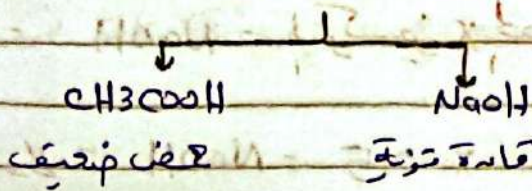 CH3COOH NaOH
حمض ضعيف قاعدة قوية